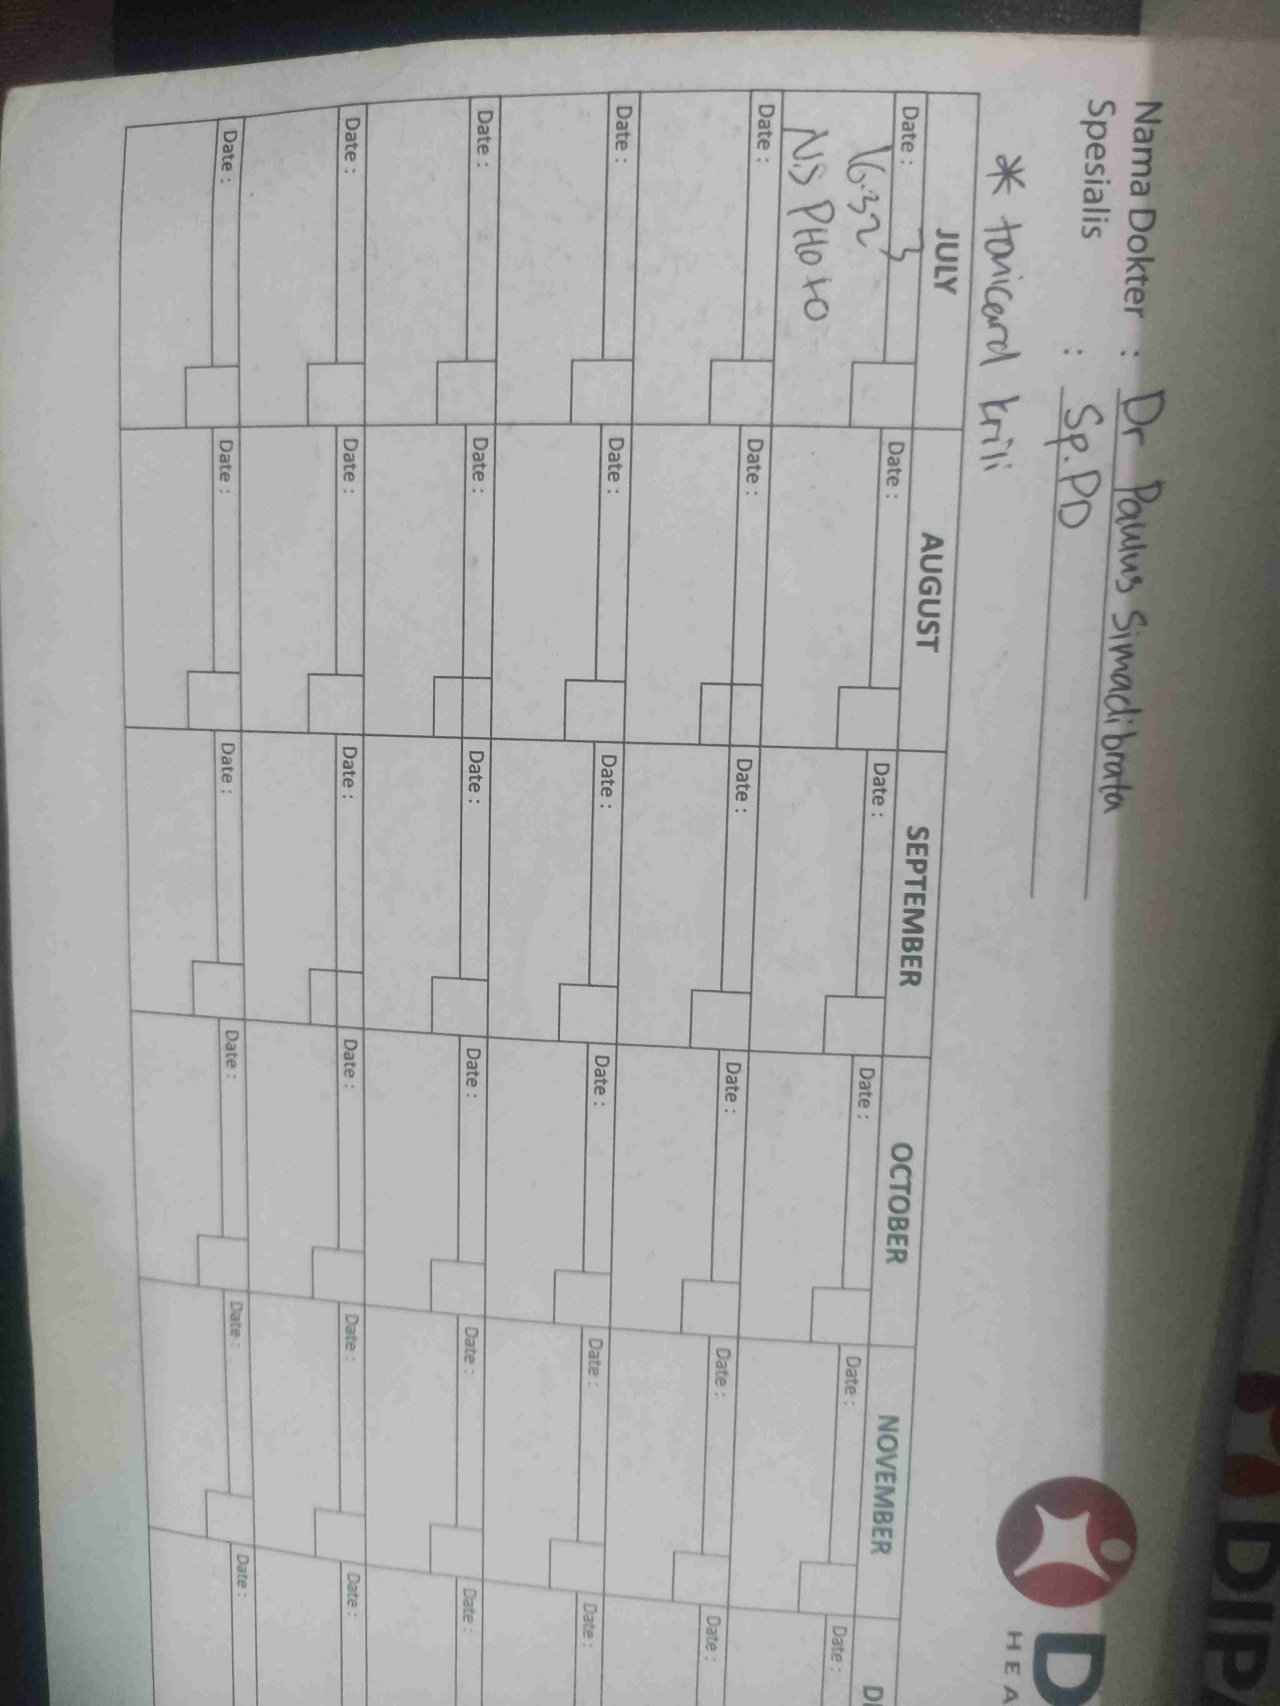 Nama Dokter : Dr Paulus Simadibrata
Spesialis : Sp.PD
* tonicard krili
JULY AUGUST SEPTEMBER OCTOBER NOVEMBER
Date : 3 Date : Date : Date : Date : Date :
16.32
NS PHOTO
Date : Date : Date : Date : Date : Date :
Date : Date : Date : Date : Date : Date :
Date : Date : Date : Date : Date : Date :
Date : Date : Date : Date : Date : Date :
Date : Date : Date : Date : Date : Date :